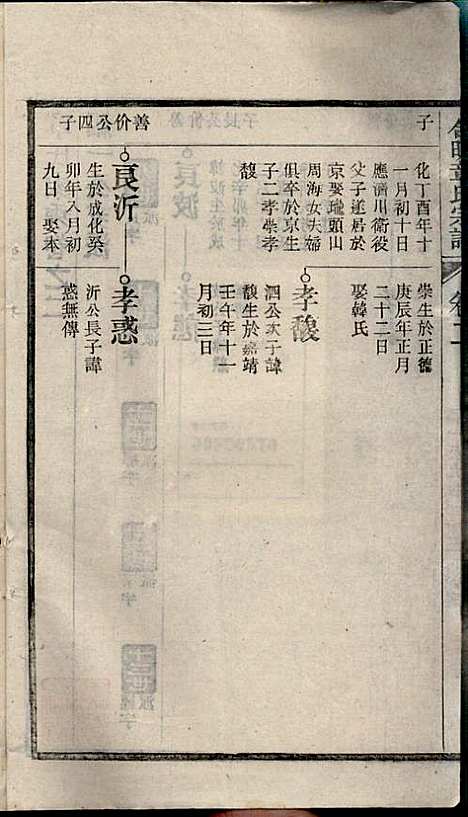 氏宗譜
子
化丁酉年十
一月初十日
應濟川衛役
父子遂居於
京娶瓏頭山
周海女夫婦
俱卒於京生
子二孝崇孝
馥
崇生於正德
庚辰年正月
二十二日
娶韓氏
孝馥
泗公次子諱
馥生於嘉靖
壬午年十一
月初三日
善价公四子
良沂
生於成化癸
卯年八月初
九日 娶本
孝惑
沂公長子諱
惑無傳